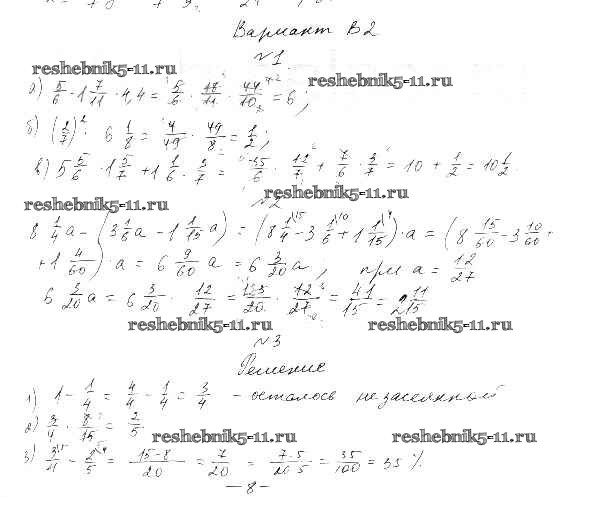 Вариант В2
№1
reshebnik5-11.ru
reshebnik5-11.ru
а) 5/6 · 1 7/11 · 4,4 = 5/6 · 18/11 · 44/10 = 6;
б) (2/7)² · 6 1/8 = 4/49 · 49/8 = 1/2;
в) 5 5/6 · 1 5/7 + 1 1/6 · 3/7 = 35/6 · 12/7 + 7/6 · 3/7 = 10 + 1/2 = 10 1/2.
reshebnik5-11.ru
reshebnik5-11.ru
№2
8 1/4 a - (3 1/6 a - 1 1/15 a) = (8 1/4 - 3 1/6 + 1 1/15) · a = (8 15/60 - 3 10/60 +
+ 1 4/60) · a = 6 9/60 a = 6 3/20 a, при a = 12/27
6 3/20 a = 6 3/20 · 12/27 = 123/20 · 12/27 = 41/15 = 2 11/15
reshebnik5-11.ru
reshebnik5-11.ru
№3
Решение
1) 1 - 1/4 = 4/4 - 1/4 = 3/4 - осталось незасеянный
2) 3/4 · 8/15 = 2/5
reshebnik5-11.ru
reshebnik5-11.ru
3) 3/4 - 2/5 = 15-8/20 = 7/20 = 7·5/20·5 = 35/100 = 35 %.
- 8 -